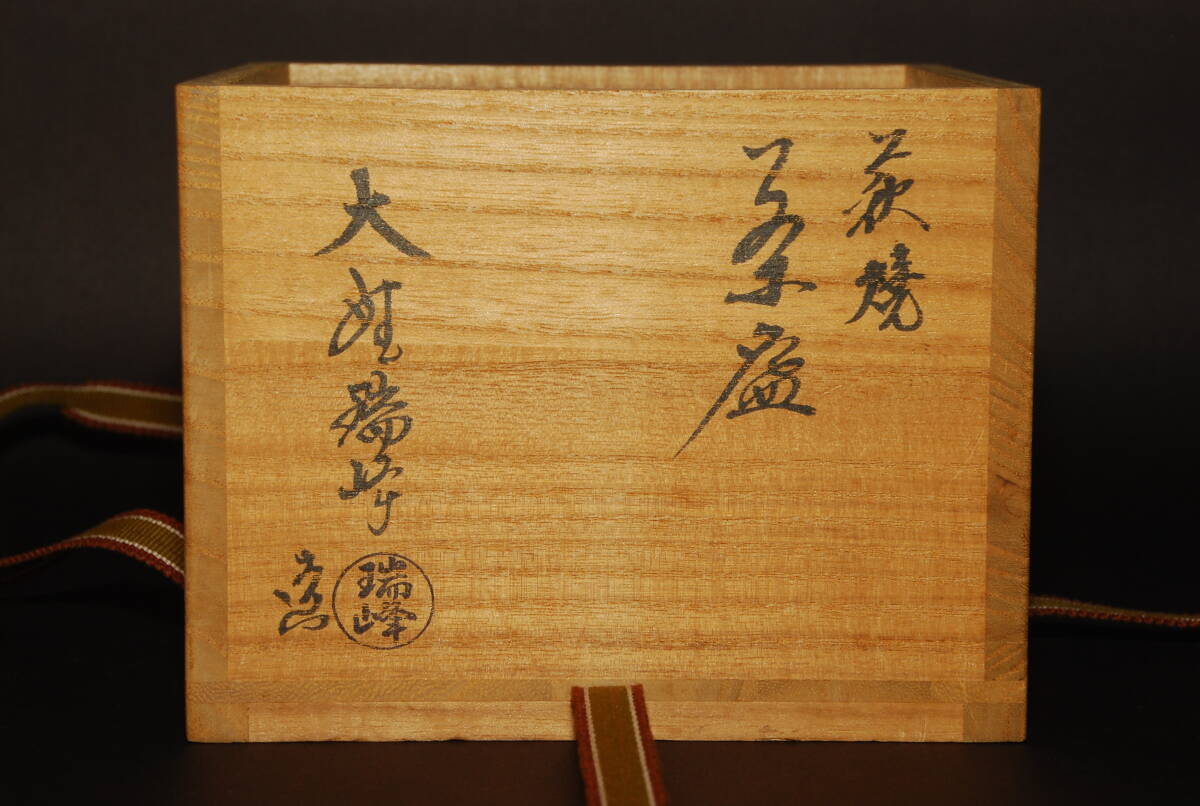 萩焼
茶盌
大野瑞峰
瑞峰
造